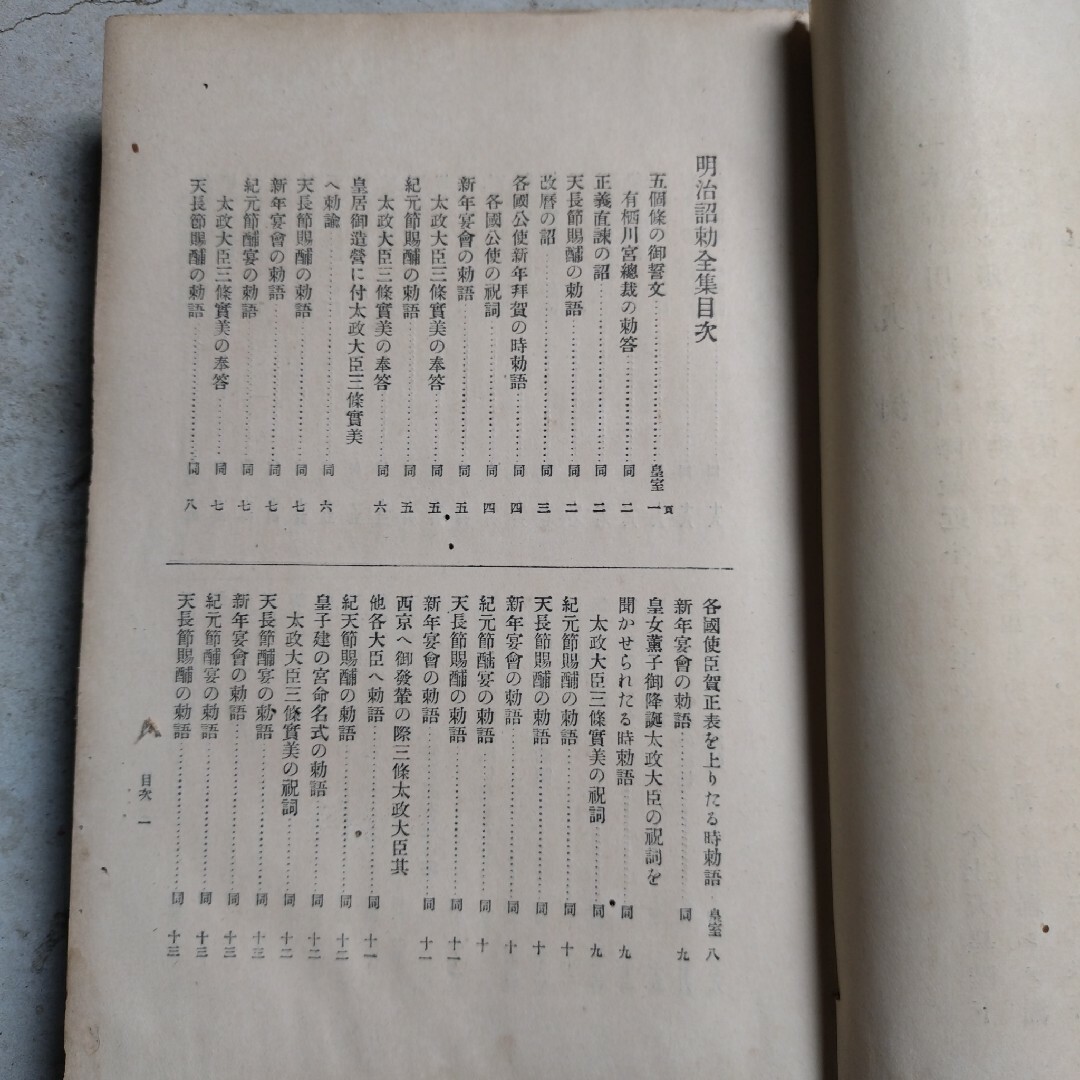 明治詔勅全集目次
五個條の御誓文……皇室 一頁
有栖川宮總裁の勅答……同 二
正義直諫の詔……同 二
天長節賜酺の勅語……同 二
改曆の詔……同 三
各國公使新年拜賀の時勅語……同 四
各國公使の祝詞……同 四
新年宴會の勅語……同 五
太政大臣三條實美の奉答……同 五
紀元節賜酺の勅語……同 五
太政大臣三條實美の奉答……同 六
皇居御造營に付太政大臣三條實美
へ勅諭……同 六
天長節賜酺の勅語……同 七
新年宴會の勅語……同 七
紀元節酺宴の勅語……同 七
太政大臣三條實美の奉答……同 七
天長節賜酺の勅語……同 八
各國使臣賀正表を上りたる時勅語 皇室 八
新年宴會の勅語……同 九
皇女薰子御降誕太政大臣の祝詞を
聞かせられたる時勅語……同 九
太政大臣三條實美の祝詞……同 九
紀元節賜酺の勅語……同 十
天長節賜酺の勅語……同 十
新年宴會の勅語……同 十
紀元節酺宴の勅語……同 十
天長節賜酺の勅語……同 十一
新年宴會の勅語……同 十一
西京へ御發輦の際三條太政大臣其
他各大臣へ勅語……同 十一
紀天節賜酺の勅語……同 十二
皇子建の宮命名式の勅語……同 十二
太政大臣三條實美の祝詞……同 十二
天長節酺宴の勅語……同 十三
新年宴會の勅語……同 十三
紀元節酺宴の勅語……同 十三
天長節賜酺の勅語……同 十三
目次 一